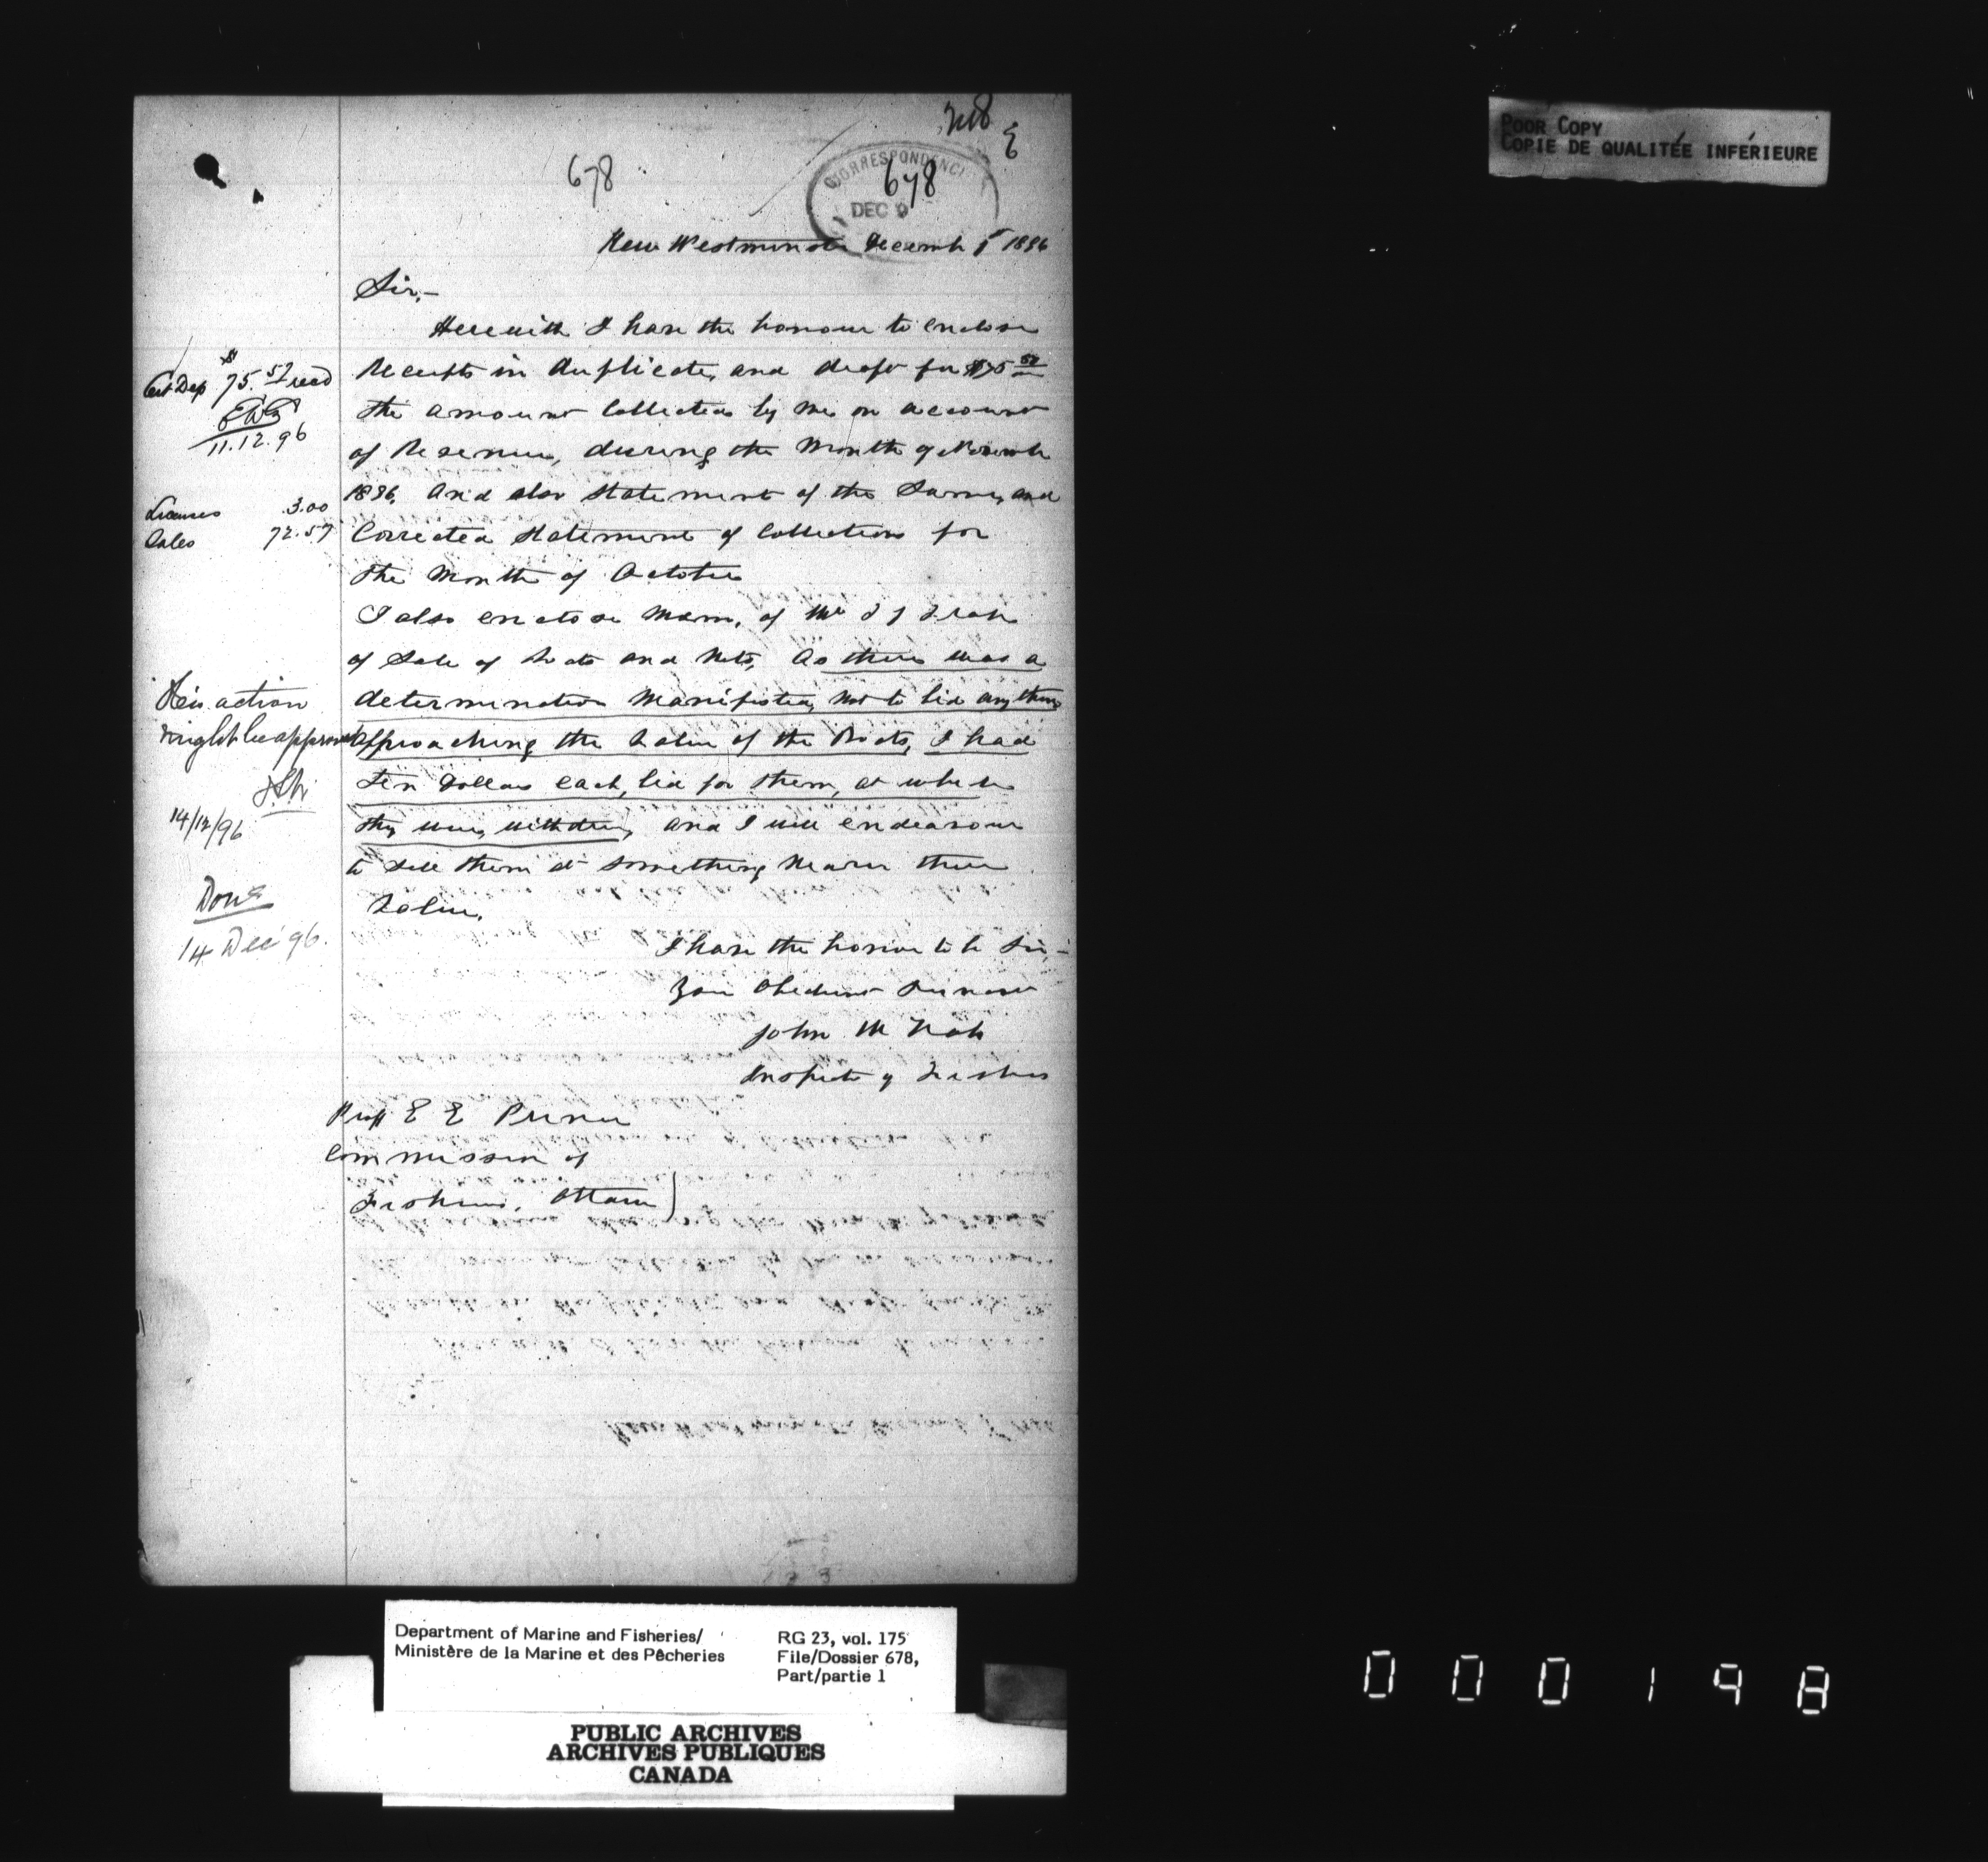 678
CORRESPONDENCE
678
DEC 9
New Westminster December 1896
Sir,-
Herewith I have the honour to enclose
Receipts in duplicate, and draft for $75 57
the amount Collected by me on account
of Revenue, during the Month of November
1896. and also Statement of the Same, and
Corrected Statement of Collections for
the Month of October
I also enclose Mem. of Mr
of Sale of Boats and Nets, As there was a
determination Manifested, not to bid anything
approaching the Value of the Boats, I had
ten Dollars each, bid for them, at which
they were, withdrawn, and I will endeavour
to Sell them at Something Nearer their
Value.
I have the honor to be Sir,-
Your Obedient Servant
John McNab
Inspector of Fisheries
Cert Dep $75.57 recd
11.12.96
Licenses 3.00
Sales 72.57
His action
might be approved
14/12/96
Done
14 Dec 96.
Proff E E Prince
Commissioner of
Fisheries, Ottawa)
POOR COPY
COPIE DE QUALITÉE INFÉRIEURE
Department of Marine and Fisheries/
Ministère de la Marine et des Pêcheries
RG 23, vol. 175
File/Dossier 678,
Part/partie 1
PUBLIC ARCHIVES
ARCHIVES PUBLIQUES
CANADA
000198